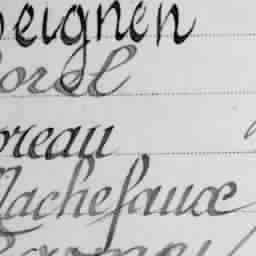 eignen
orel
oreau
achefaux